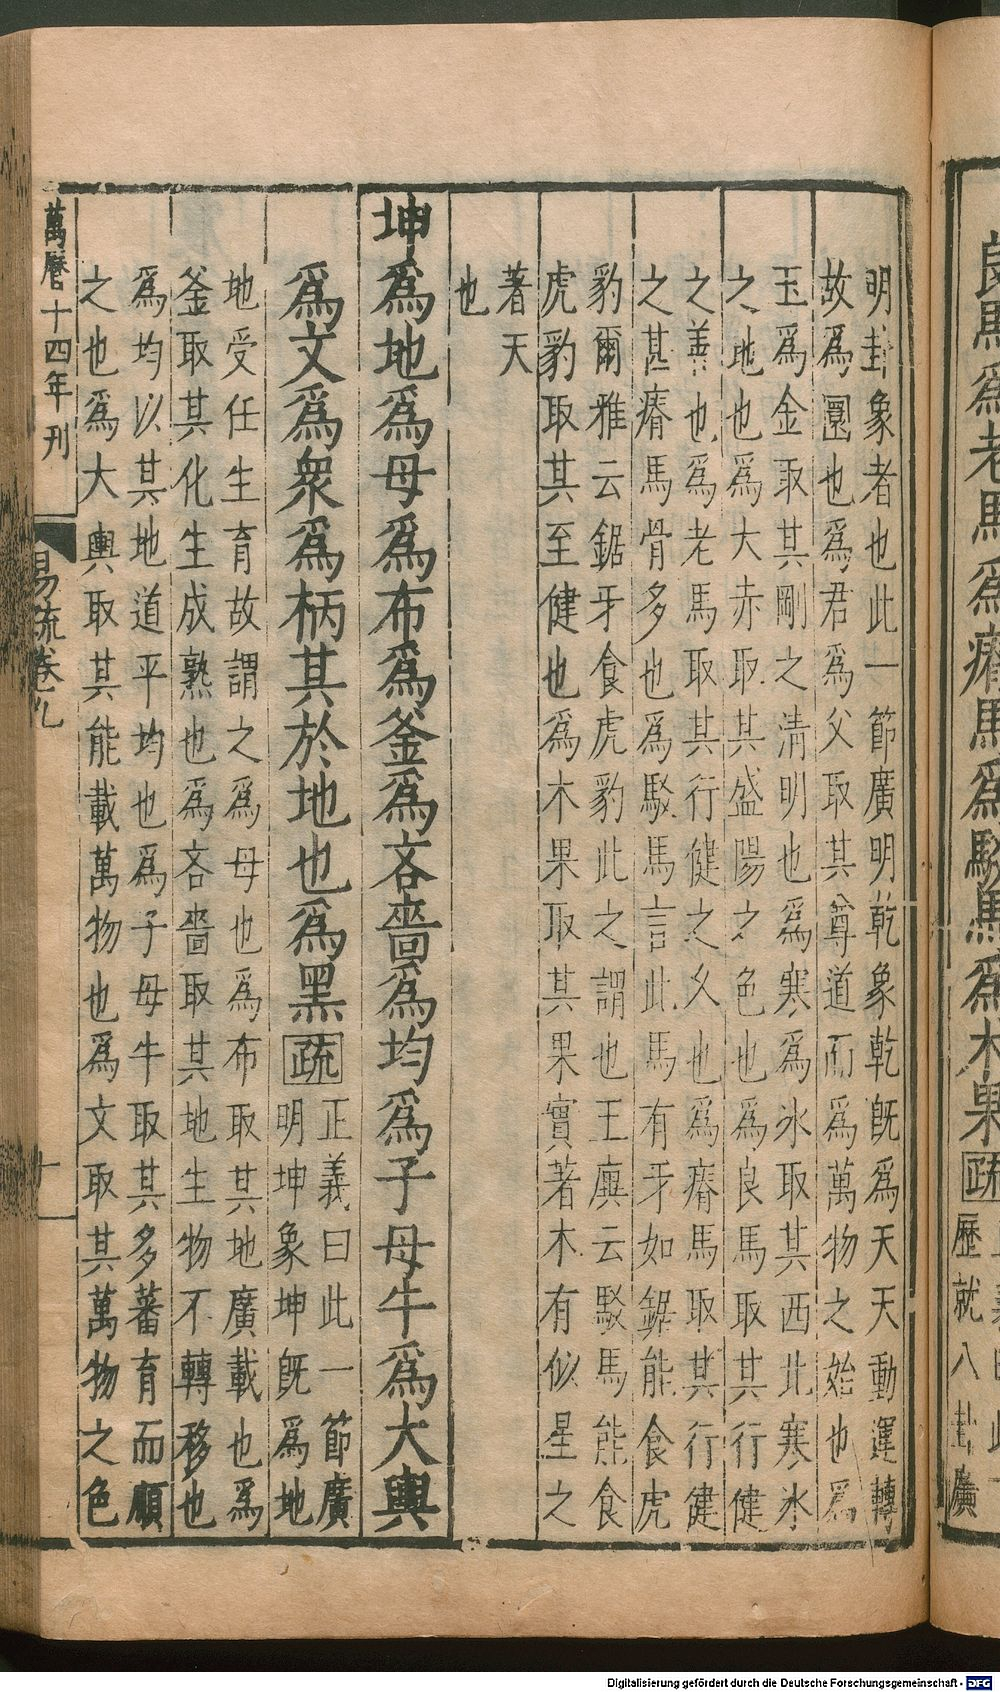 良馬爲老馬爲瘠馬爲駁馬爲木果疏
歷就八卦廣
明卦象者也此一節廣明乾象乾既爲天天動運轉
故爲圜也爲君爲父取其尊道而爲萬物之始也爲
玉爲金取其剛之清明也爲寒爲冰取其西北寒冰
之地也爲大赤取其盛陽之色也爲良馬取其行健
之善也爲老馬取其行健之久也爲瘠馬取其行健
之甚瘠馬骨多也爲駁馬言此馬有牙如鋸能食虎
豹爾雅云鋸牙食虎豹此之謂也王廙云駁馬能食
虎豹取其至健也爲木果取其果實著木有似星之
著天
也
坤爲地爲母爲布爲釜爲吝嗇爲均爲子母牛爲大輿
爲文爲衆爲柄其於地也爲黑疏
正義曰此一節廣
明坤象坤既爲地
地受任生育故謂之爲母也爲布取其地廣載也爲
釜取其化生成熟也爲吝嗇取其地生物不轉移也
爲均以其地道平均也爲子母牛取其多蕃育而順
之也爲大輿取其能載萬物也爲文取其萬物之色
萬曆十四年刊
易疏卷九
Digitalisierung gefördert durch die Deutsche Forschungsgemeinschaft - DFG